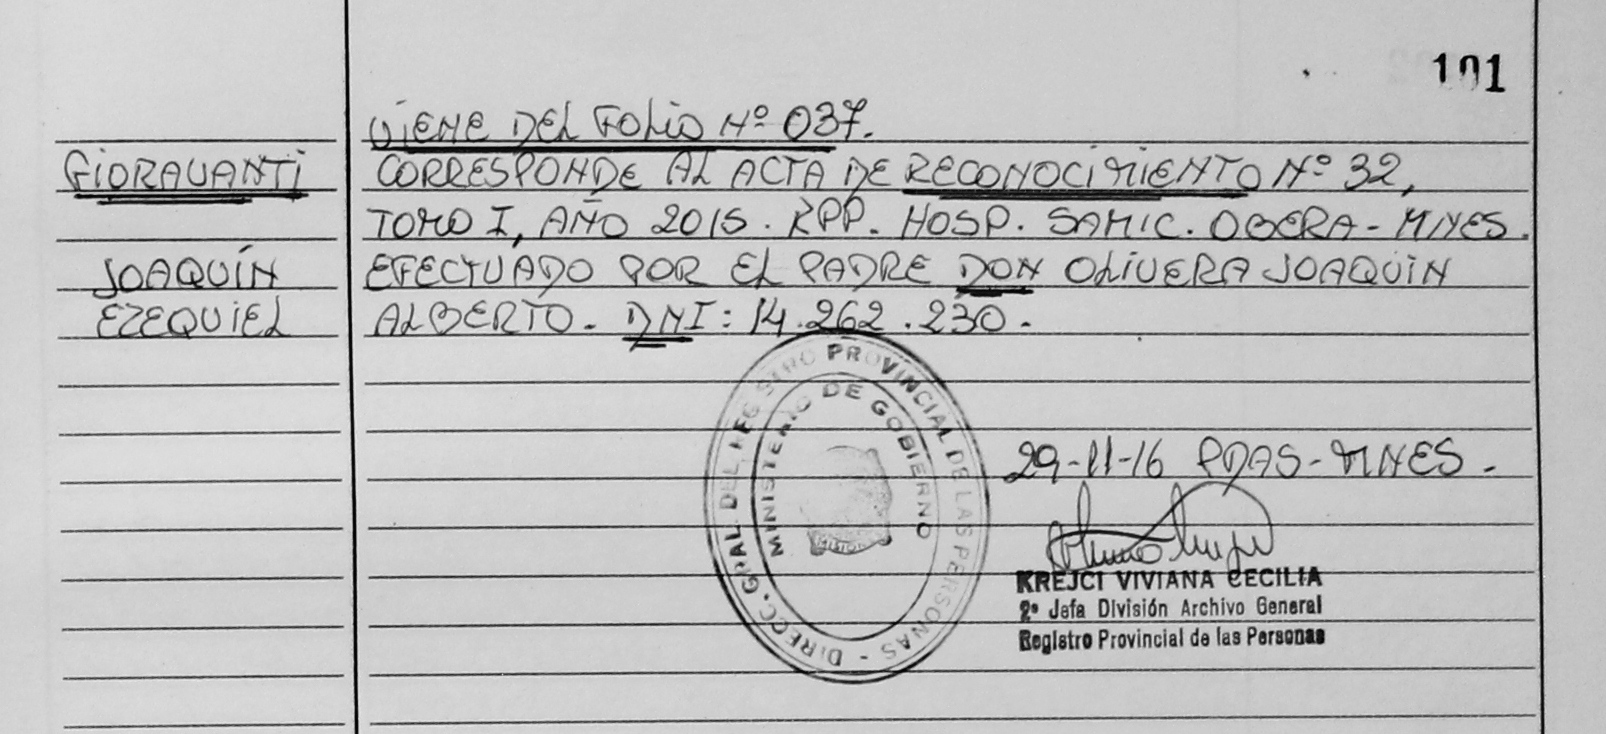 101
VIENE DEL FOLIO Nº 037.
FIORAVANTI
CORRESPONDE AL ACTA DE RECONOCIMIENTO Nº 32,
TOMO I, AÑO 2015. RPP. HOSP. SAMIC. OBERA - MNES.
JOAQUÍN
EFECTUADO POR EL PADRE DON OLIVERA JOAQUIN
EZEQUIEL
ALBERTO. DNI: 14.262.230.
DIRECC. GRAL DEL REGISTRO PROVINCIAL DE LAS PERSONAS -
MINISTERIO DE GOBIERNO
MISIONES
29-11-16 PDAS-MNES.
KREJCI VIVIANA CECILIA
2º Jefa División Archivo General
Registro Provincial de las Personas